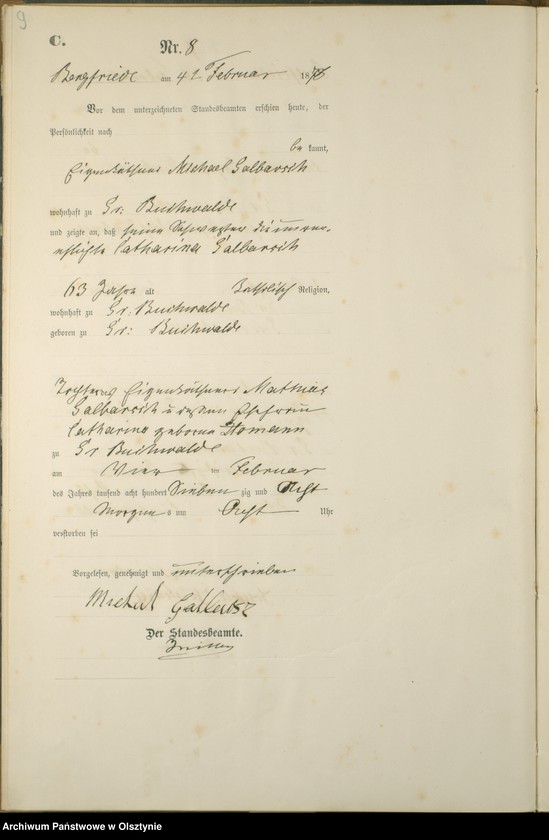 9
C.
Nr. 8
Bergfriede am 4 ten Februar 1878
Vor dem unterzeichneten Standesbeamten erschien heute, der
Persönlichkeit nach
be kannt,
Eigenkäthner Michael Galbarsch
wohnhaft zu Gr: Buchwalde
und zeigte an, daß seine Schwester die unver-
ehlichte Catharina Galbarsch
63 Jahre alt Katholisch Religion,
wohnhaft zu Gr: Buchwalde
geboren zu Gr: Buchwalde
Tochter des Eigenkäthners Mathias
Galbarsch u dessen Ehefrau
Catharina geborne
zu Gr Buchwalde
am Vier ten Februar
des Jahres tausend acht hundert Sieben zig und Acht
Morgens um Acht Uhr
verstorben sei
Vorgelesen, genehmigt und unterschrieben
Michael
Der Standesbeamte.
Archiwum Państwowe w Olsztynie